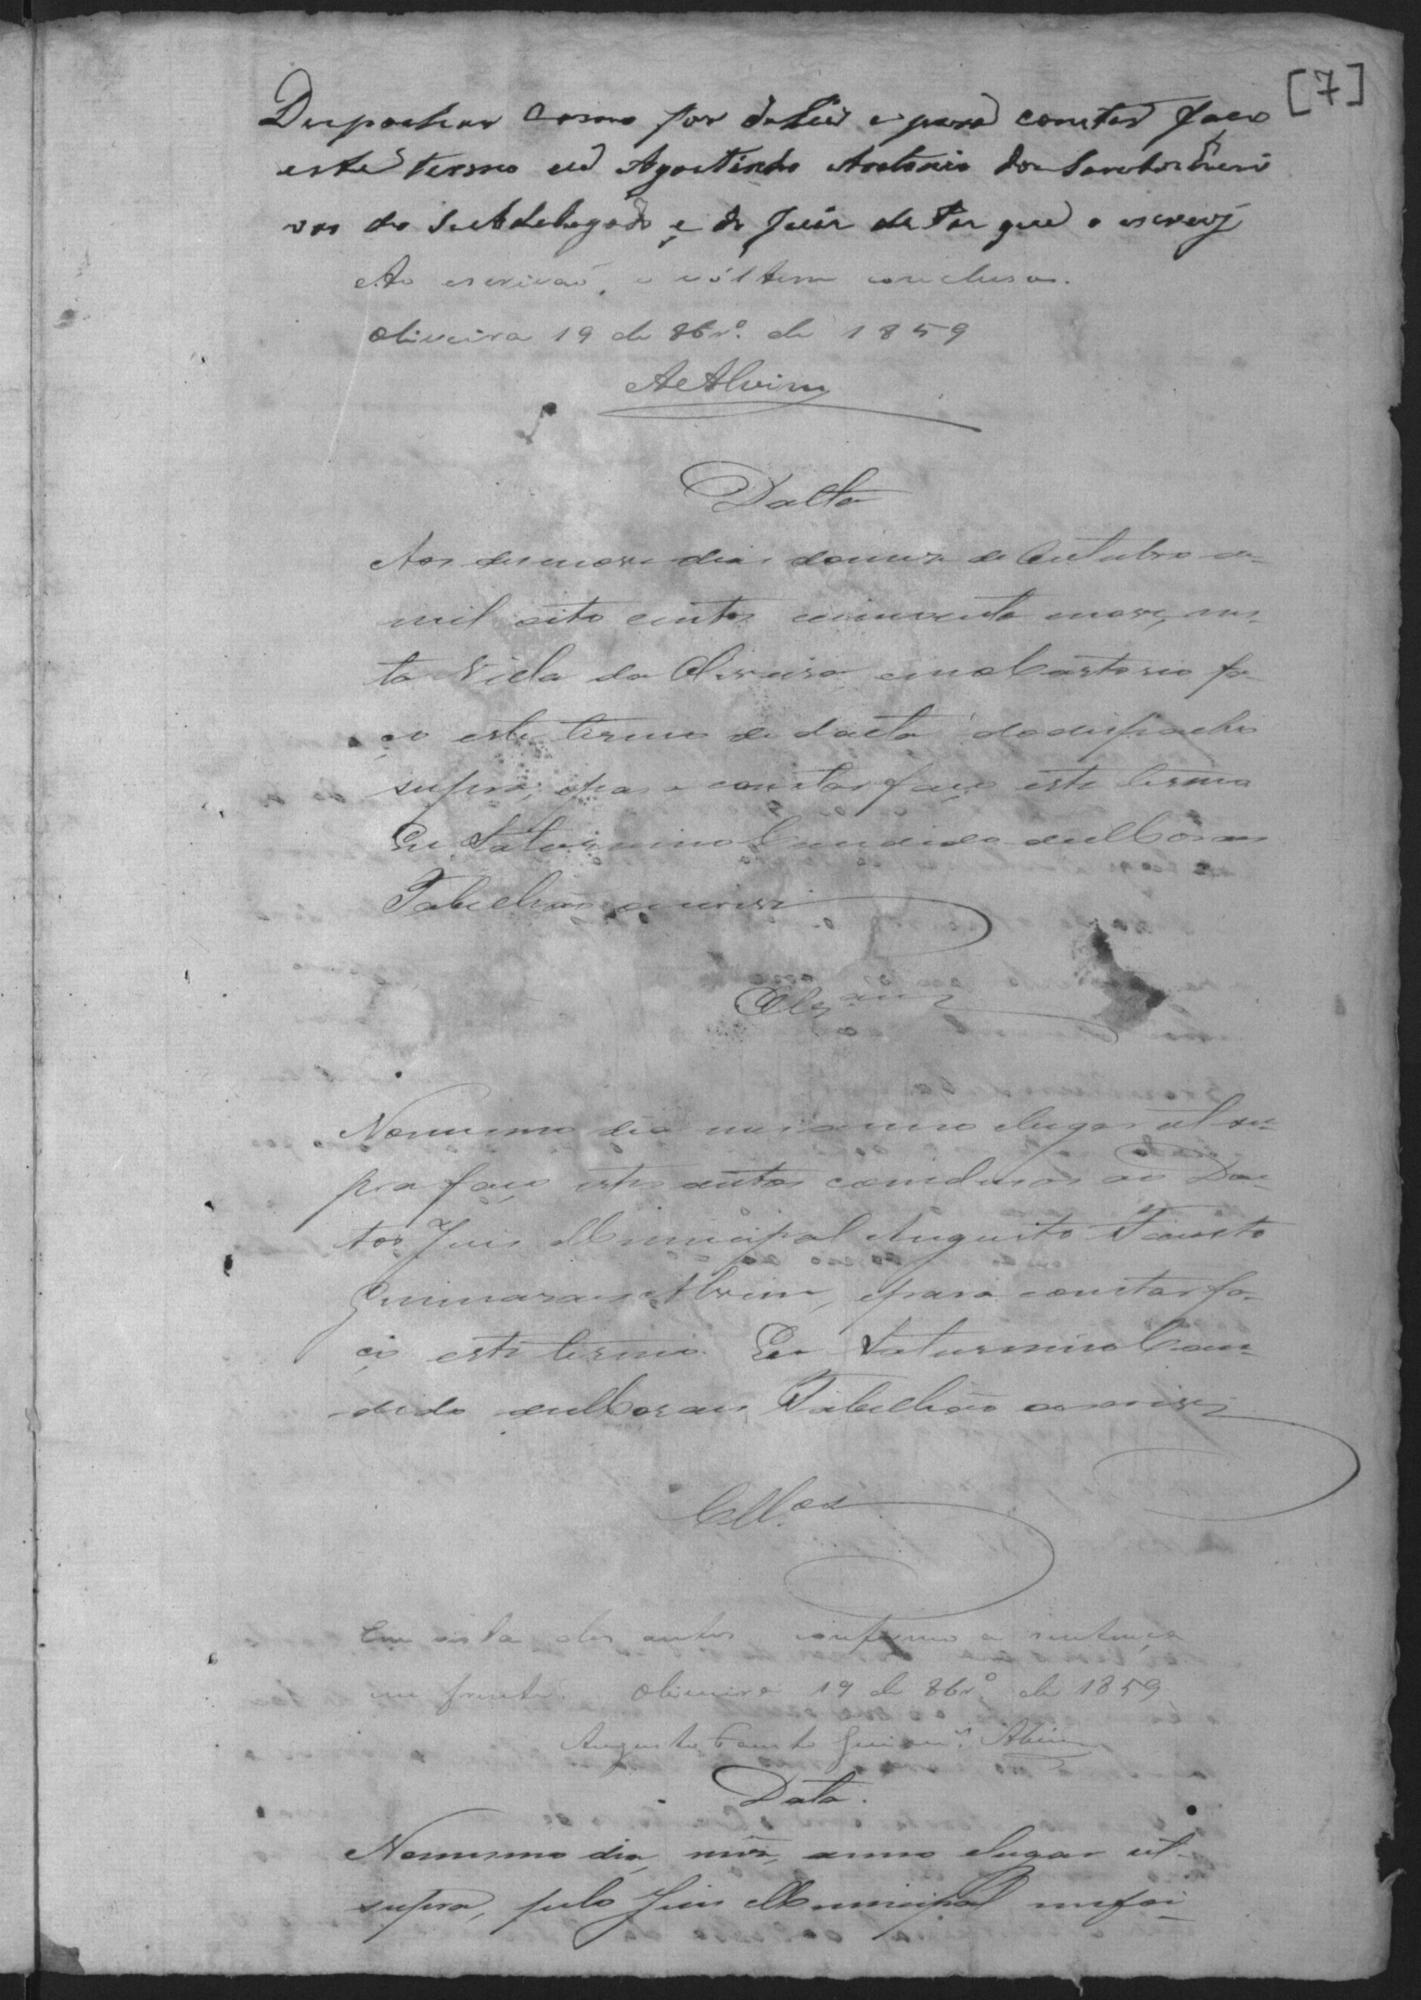 [7]
Despachar como for de Lei e para constar faço
este termo eu Agostinho Antonio dos Santos Escri
vão do Subdelegado e do Juiz de Paz que o escrevj
Ao escrivão, e vóltem conclusos.
Oliveira 19 de 8br.º de 1859
AAlvim
Datta
Aos desenove dias domez de Outubro de
mil oito centos cincoenta enove, nes-
ta Villa da Oliveira em o Cartorio fa-
ço este termo de dacta do despacho
supra, epara constar faço este termo
Eu Saturnino Candido de Moraes
Tabellião o escrevi
Clzam
Nomesmo dia mes anno elugar ut su-
pra faço estes autos concluzos ao Dou-
tor Juis Municipal Augusto Fausto
Guimaraes Alvim, epara constar fa-
ço este termo. Eu Saturnino Can-
dido de Moraes, Tabellião o escrevi
Cllos
Em vista dos autos confirmo a sentença
em frente. Oliveira 19 de 8br.º de 1859
Augusto Fausto Guimes. Alvim
Data.
Nomesmo dia, mês, anno elugar ut
supra, pelo Juis Municipal me foi